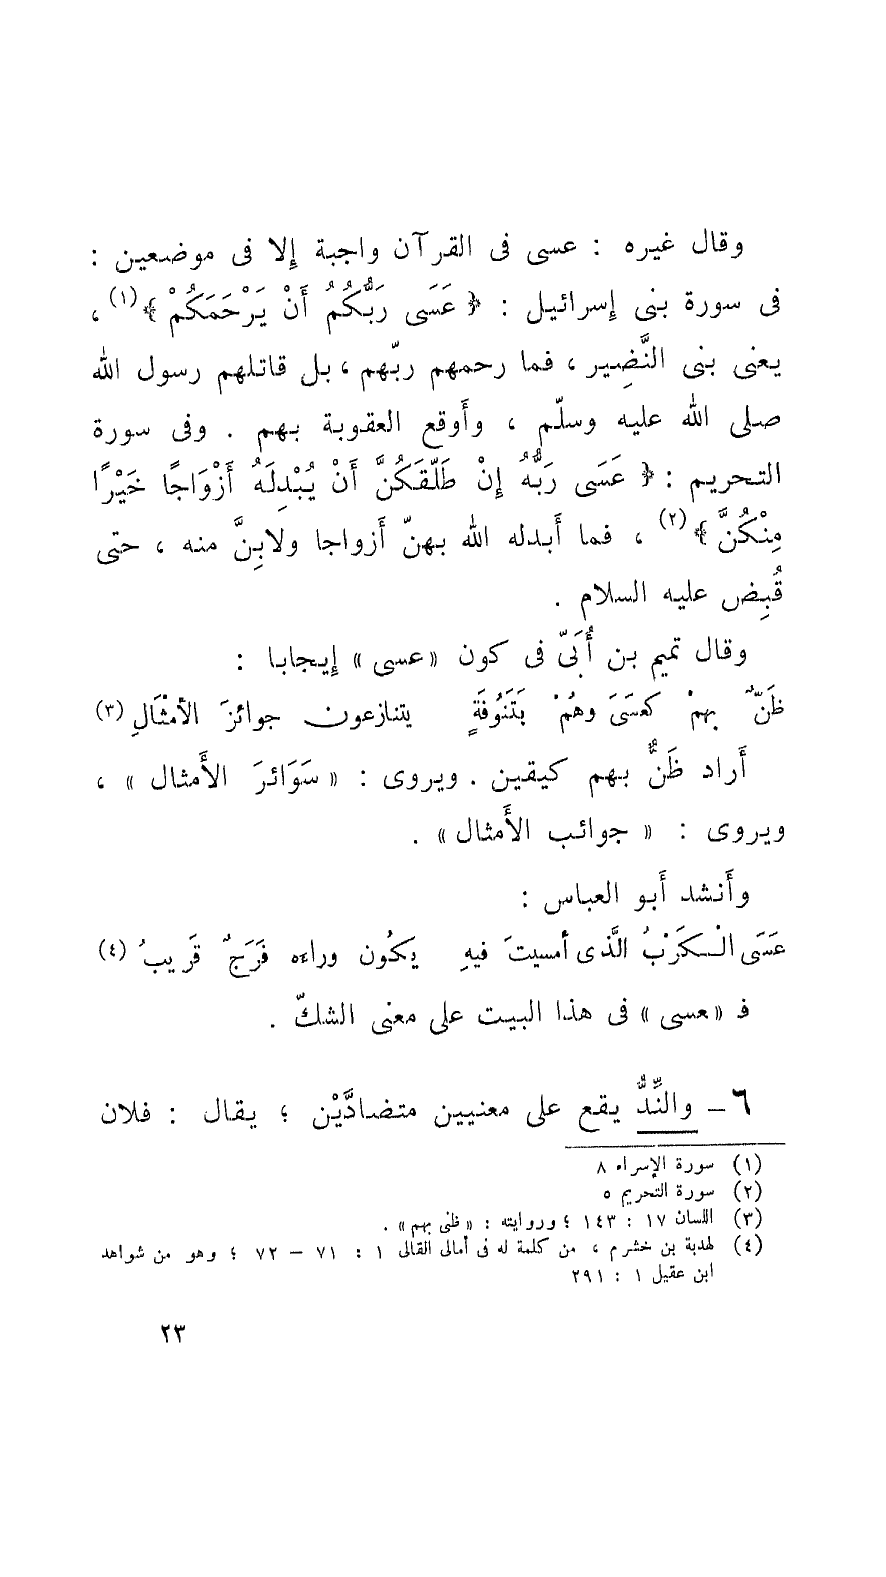 وقال غيره : عسى فى القرآن واجبة إلا فى موضعين :
فى سورة بنى إسرائيل : ﴿ عَسَى رَبُّكُمُ أَنْ يَرْحَمَكُمْ ﴾(١) ،
يعنى بنى النَّضِير ، فما رحمهم ربّهم ، بل قاتلهم رسول الله
صلى الله عليه وسلّم ، وأَوقع العقوبة بهم . وفى سورة
التحريم : ﴿ عَسَى رَبُّهُ إِنْ طَلَّقَكُنَّ أَنْ يُبْدِلَهُ أَزْوَاجًا خَيْرًا
مِنْكُنَّ ﴾(٢) ، فما أَبدله الله بهنّ أَزواجا ولابِنَّ منه ، حتى
قُبِض عليه السلام .
وقال تميم بن أُبَىّ فى كون «عسى» إِيجابا :
ظَنٌّ بهمْ كعسَىَ وهُمْ بَتَنُوفَةٍ يتنازعون جوائزَ الأمْثَالِ (٣)
أَراد ظَنٌّ بهم كيقين . ويروى : « سَوَائرَ الأَمثال » ،
ويروى : « جوائب الأَمثال » .
وأَنشد أَبو العباس :
عَسَى الْـكَرْبُ الَّذى أمسيتَ فيهِ يكُون وراءه فَرَجٌ قَريبُ (٤)
فـ «عسى» فى هذا البيت على معنى الشكّ .
٦ – والنِّدُّ يقع على معنيين متضادَّيْن ؛ يقال : فلان
(١) سورة الإسراء ٨
(٢) سورة التحريم ٥
(٣) اللسان ١٧ : ١٤٣ ؛ وروايته : « ظنى بهم » .
(٤) لهدبة بن خشرم ، من كلمة له فى أمالى القالى ١ : ٧١ – ٧٢ ؛ وهو من شواهد
ابن عقيل ١ : ٢٩١
٢٣